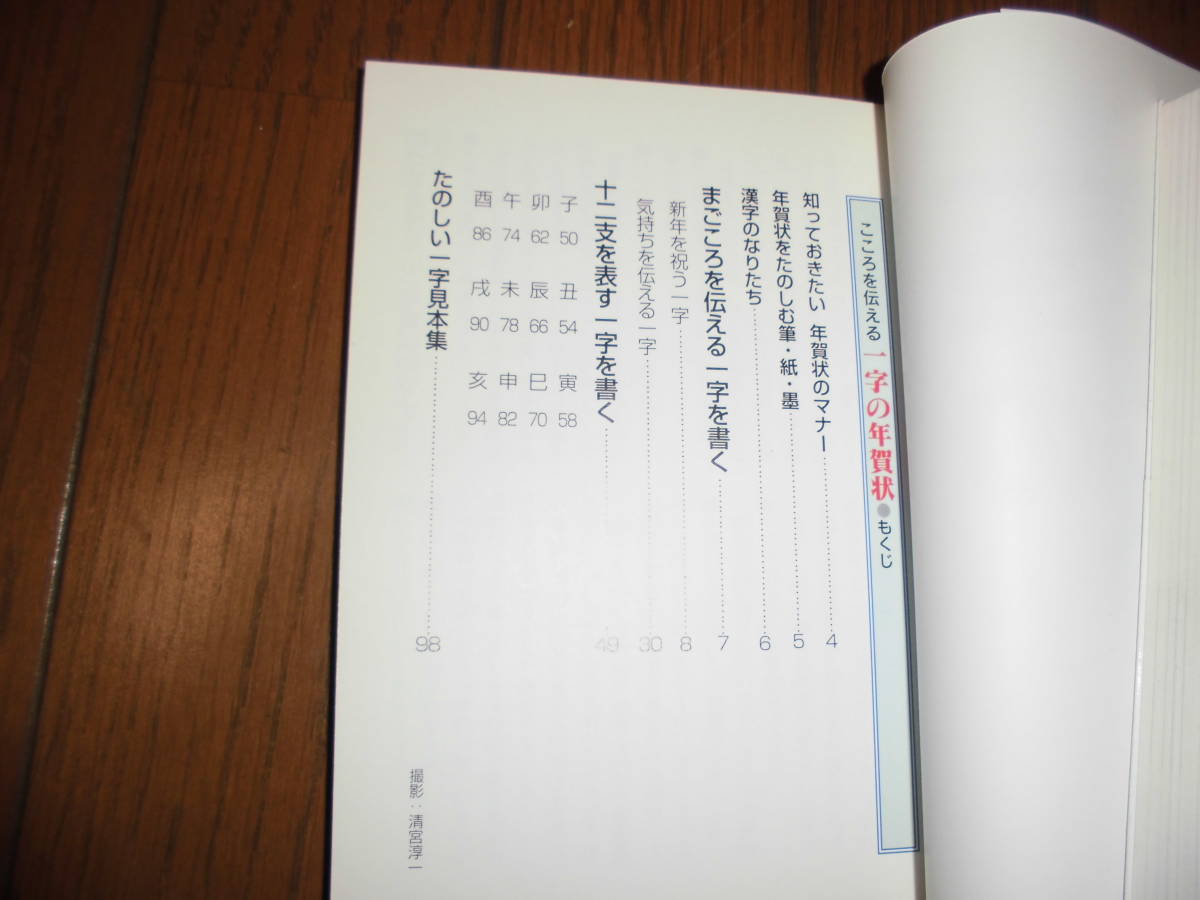 こころを伝える 一字の年賀状●もくじ
知っておきたい 年賀状のマナー……4
年賀状をたのしむ筆・紙・墨……5
漢字のなりたち……6
まごころを伝える一字を書く……7
新年を祝う一字……8
気持ちを伝える一字……30
十二支を表す一字を書く……49
子 50 丑 54 寅 58
卯 62 辰 66 巳 70
午 74 未 78 申 82
酉 86 戌 90 亥 94
たのしい一字見本集……98
撮影:清宮淳一